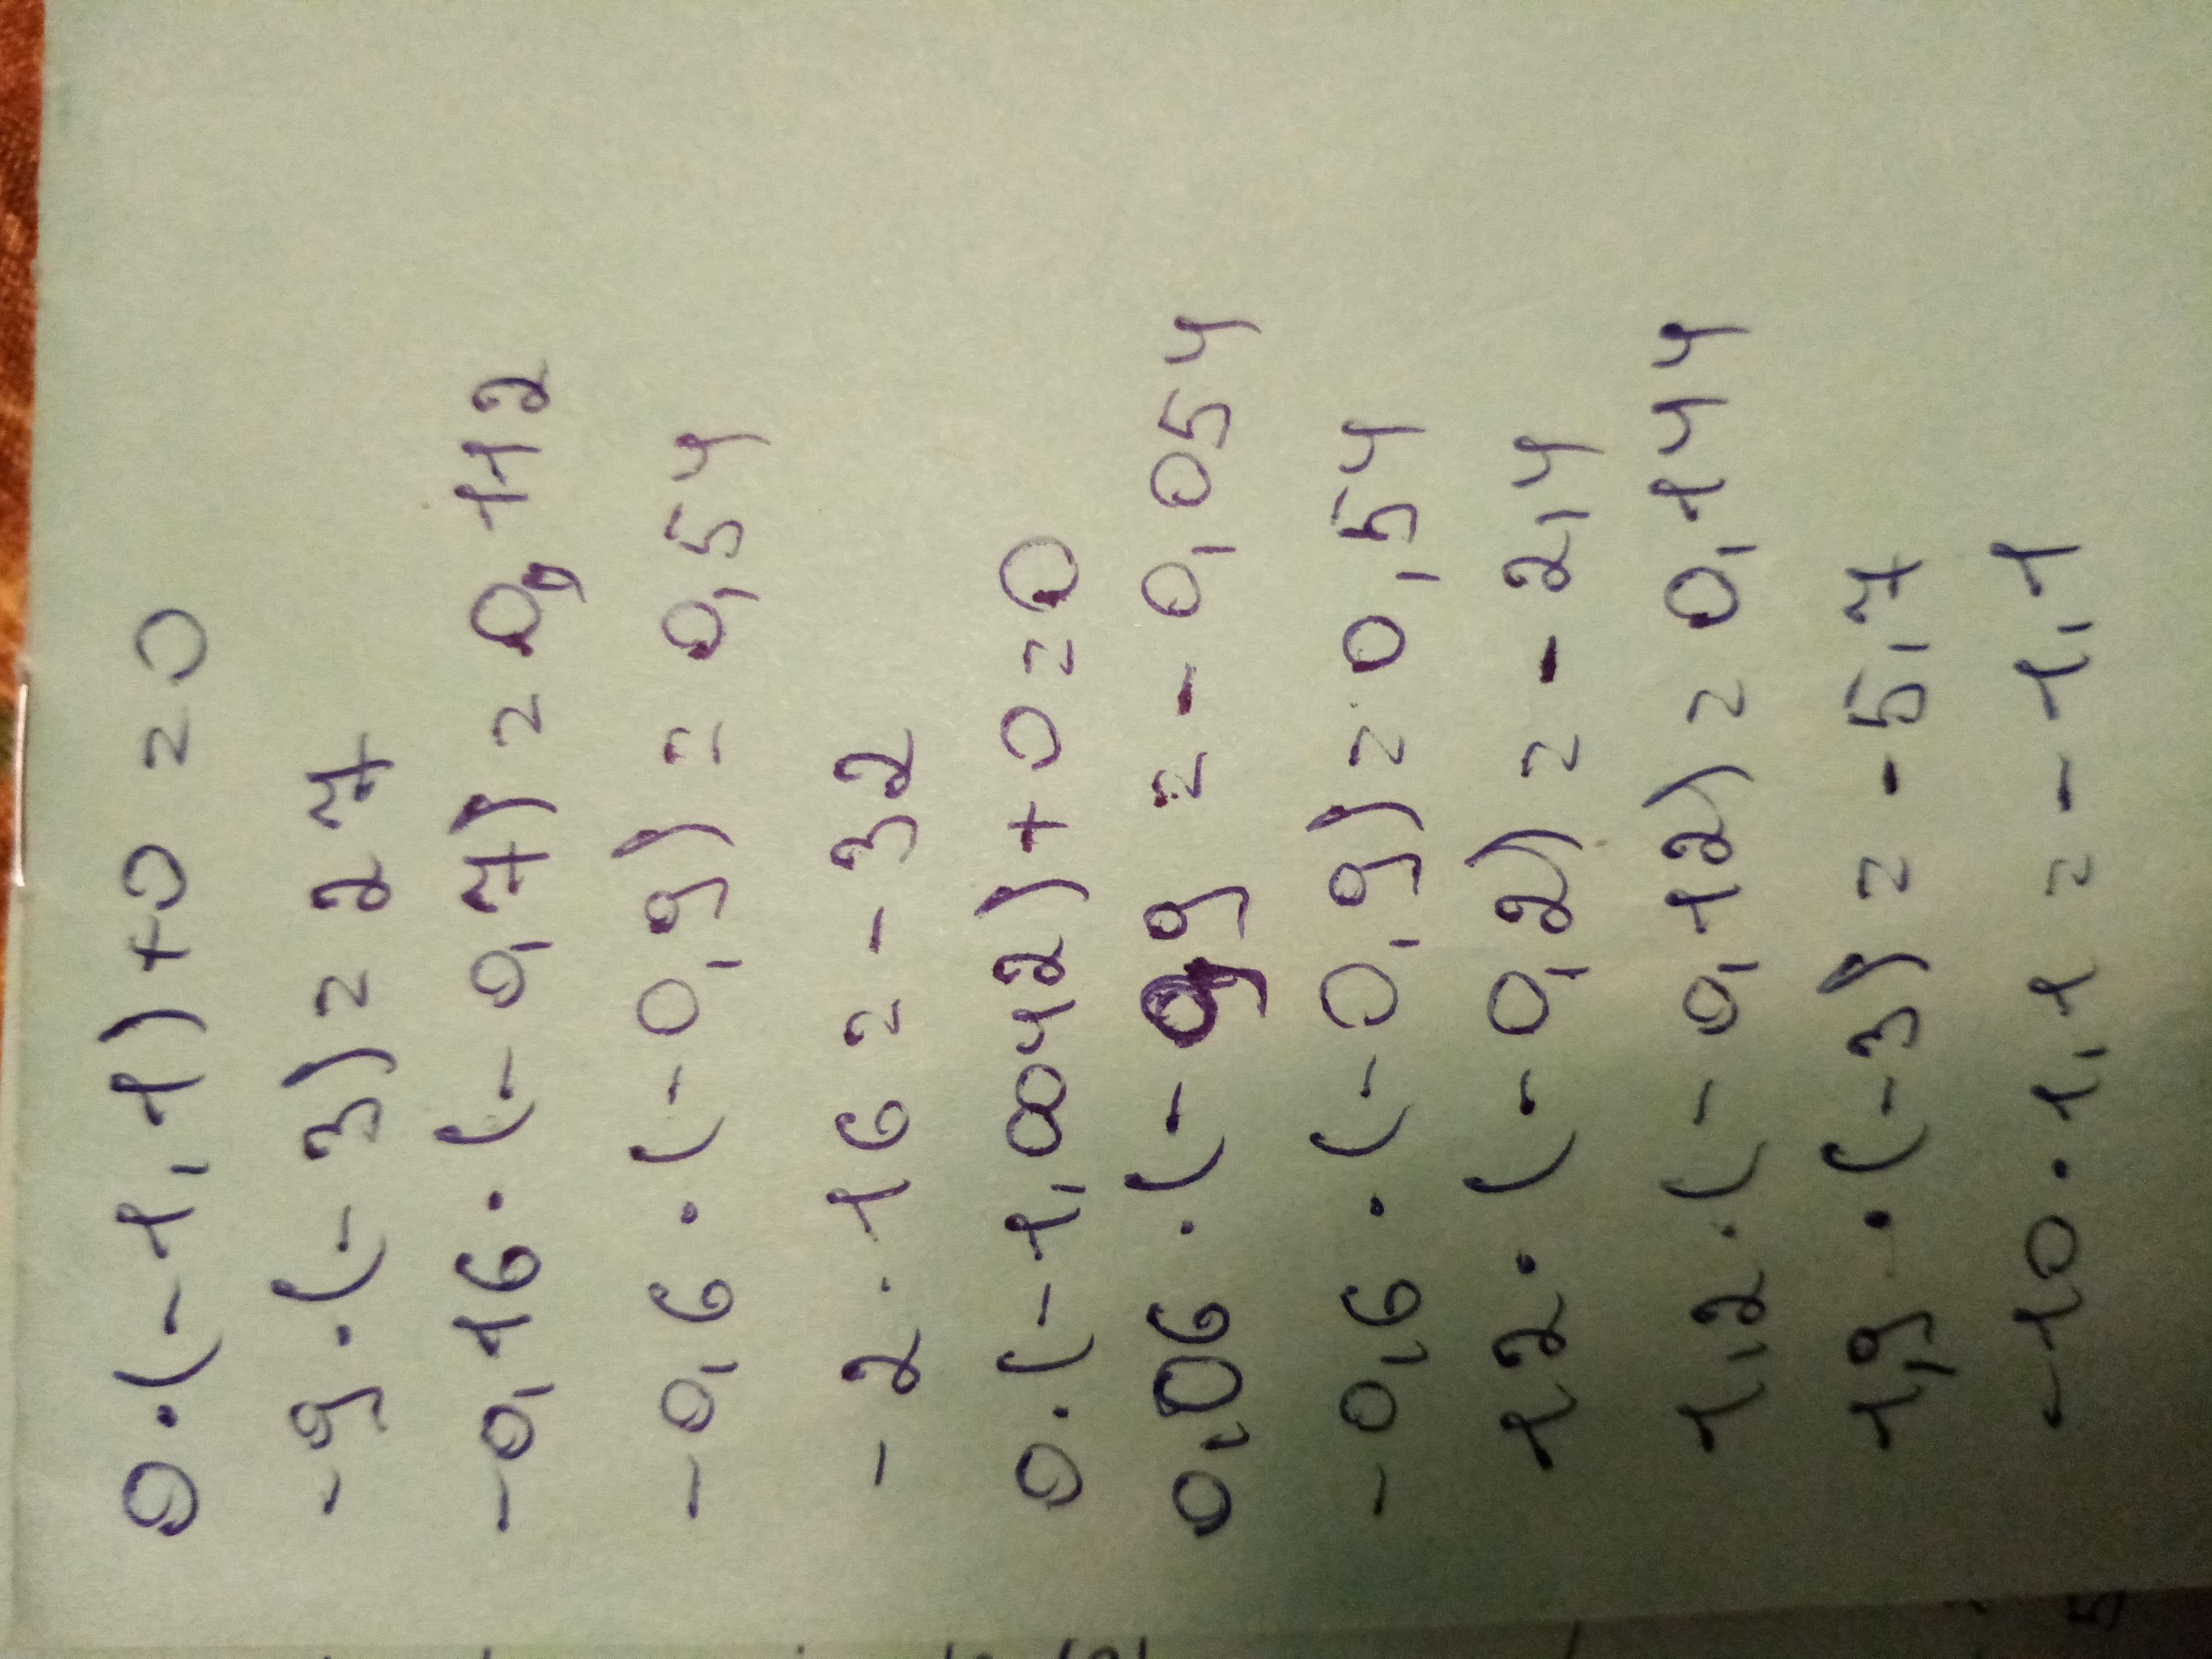 0·(-1,1)+0=0
-9·(-3)=27
-0,16·(-0,7)=0,112
-0,6·(-0,9)=0,54
-2·16=-32
0·(-1,0042)+0=0
0,06·(-0,9=-0,054
-0,6·(-0,9)=0,54
12·(-0,2)=-2,4
1,2·(-0,12)=0,144
1,9·(-3)=-5,7
-10·1,1=-1,1